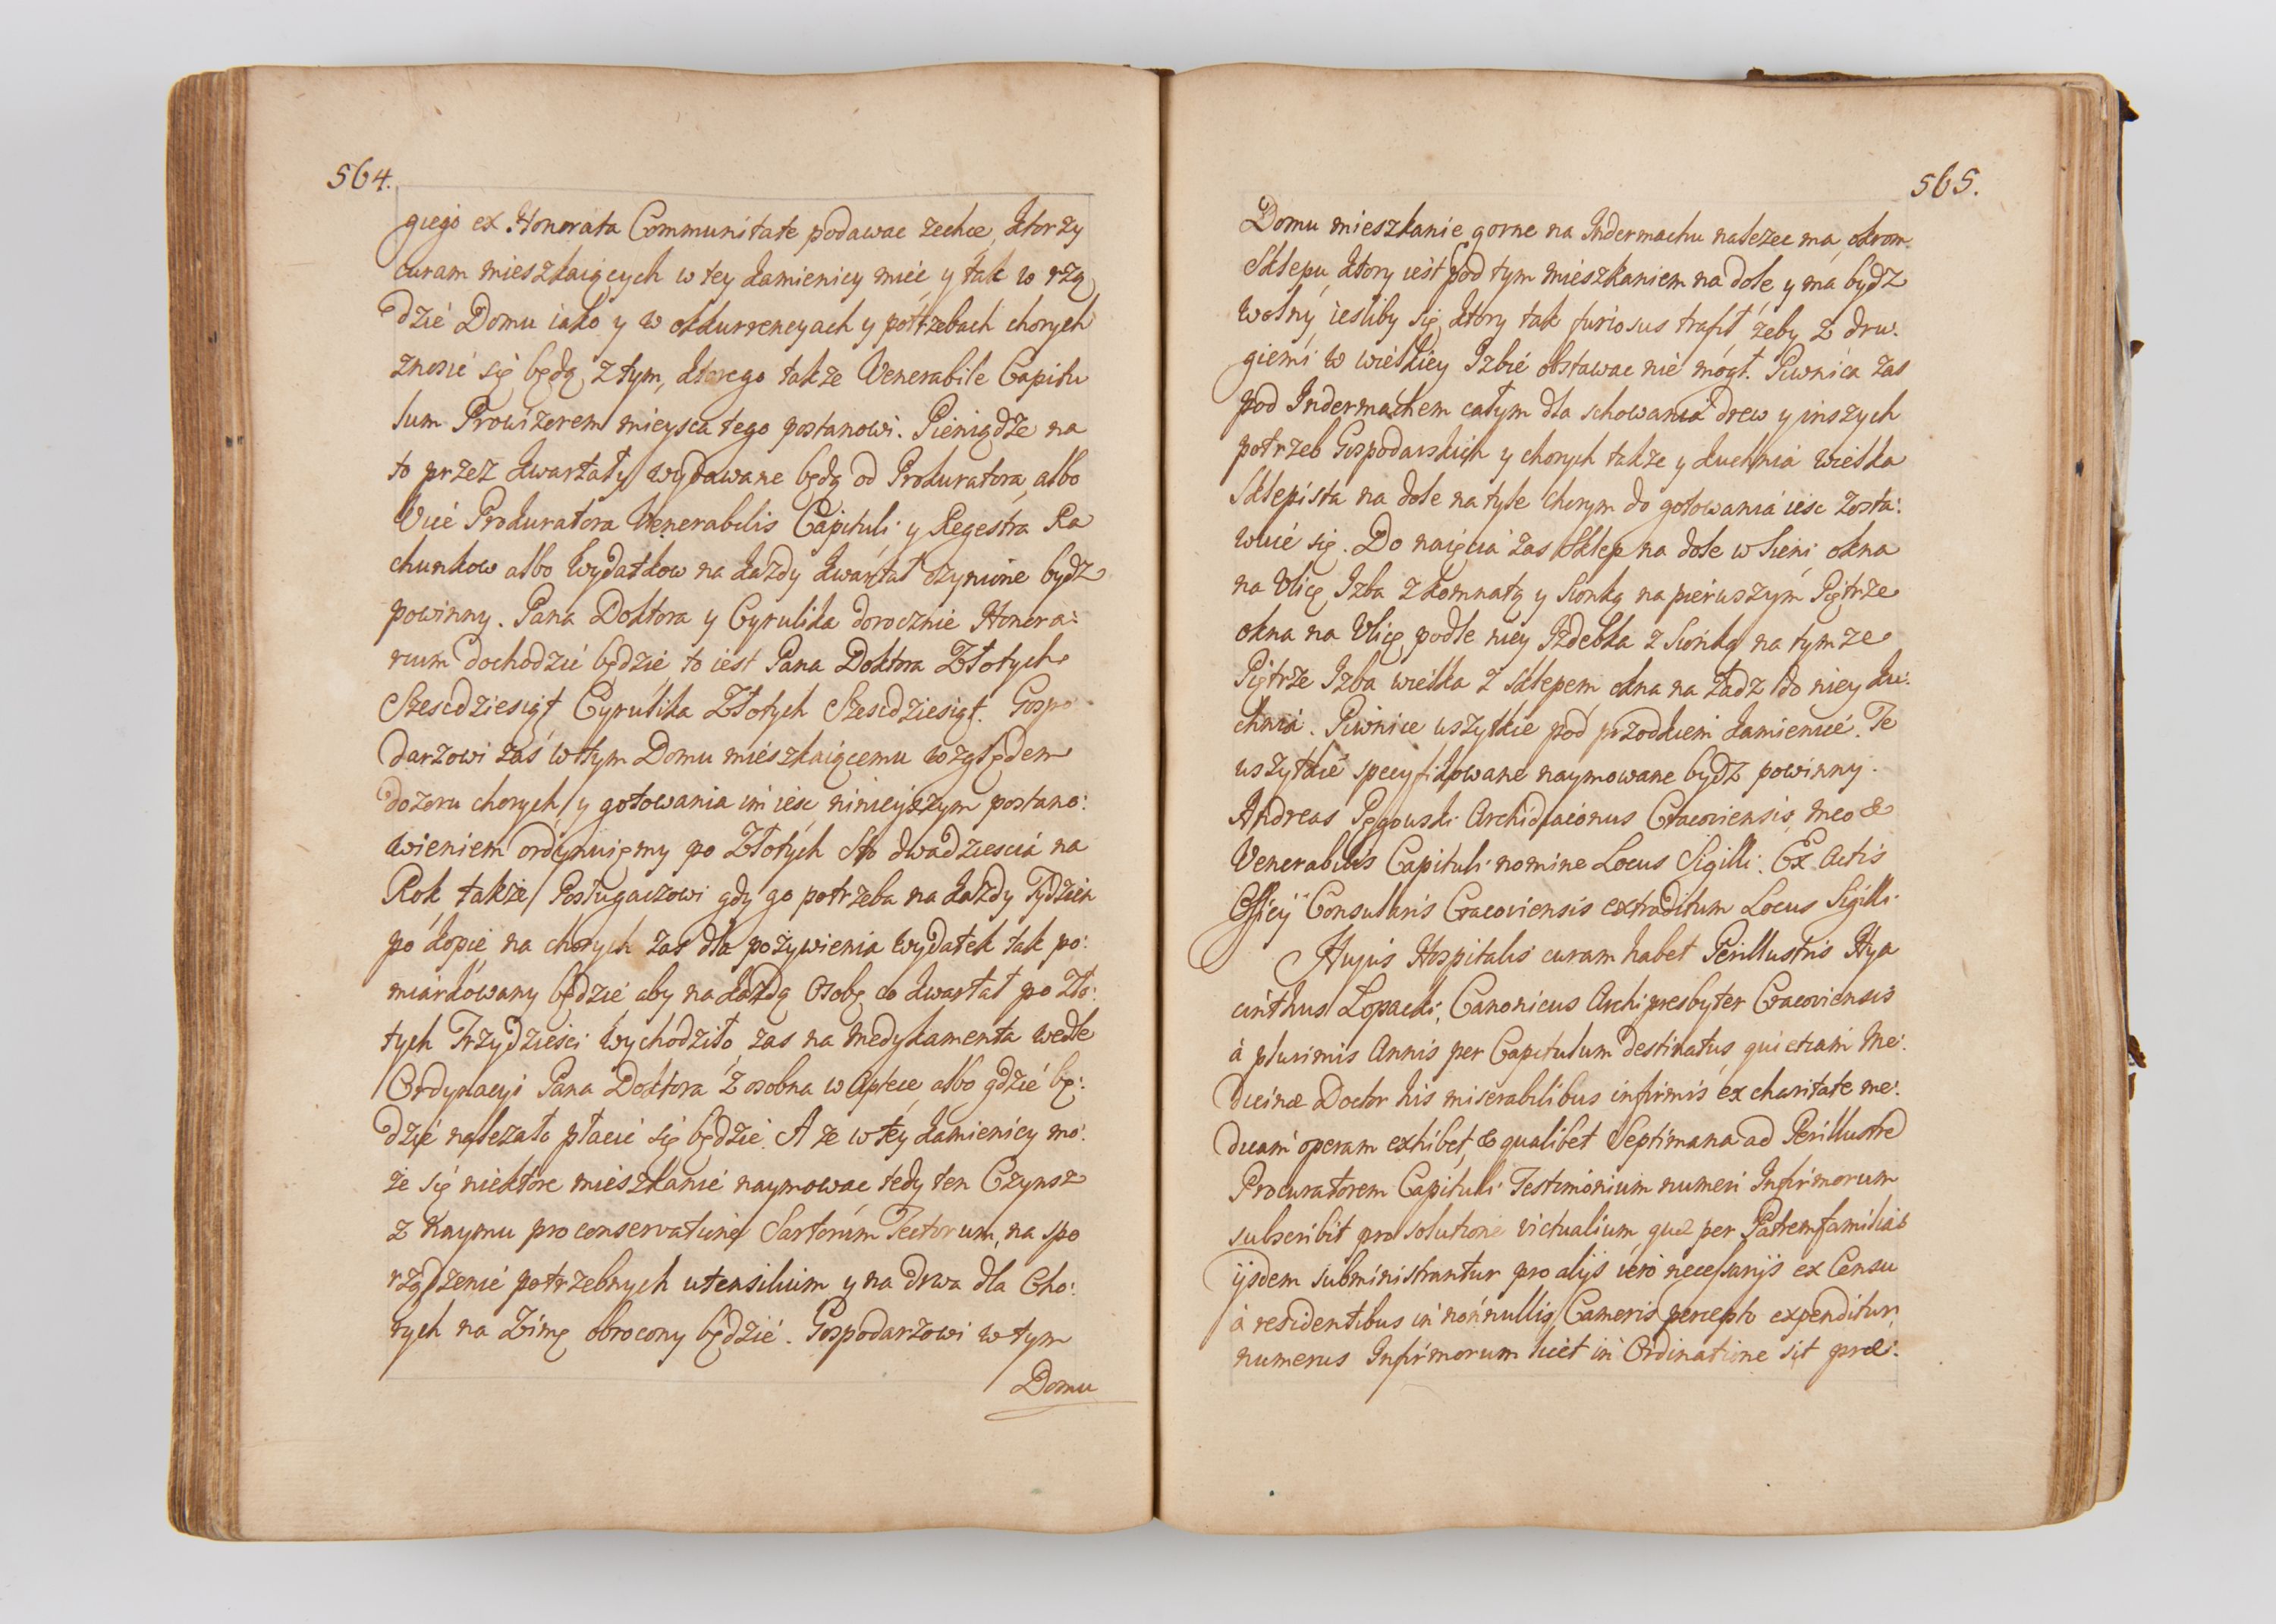 564.
giego ex Honorata Communitate podawac zechce, ktorzy
curam mieszkaiących w tey kamienicy mieć y tak w rzą
dzie Domu iako y w okkurrencyach y potrzebach chorych
znosić się będą z tym, ktorego także Venerabile Capitu
lum Prowizorem mieysca tego postanowi. Pieniądze na
to przez kwartały wydawane będą od Prokuratora, albo
Vice Prokuratora Venerabilis Capituli y Regestra Ra
chunkow albo Wydatkow na każdy kwartał czynione bydz
powinny. Pana Doktora y Cyrulika dorocznie Honora:
rium dochodzić będzie, to iest Pana Doktora Złotych
Szescdziesiąt Cyrulika Złotych Szescdziesiąt. Gospo
darzowi zaś w tym Domu mieszkaiącemu względem
dozoru chorych, y gotowania im iesc, ninieyszym postano:
wieniem ordynuięmy po Złotych Sto dwadziescia na
Rok także Posługaczowi gdy go potrzeba na każdy Tydzień
po kopie, na chorych zas dla pożywienia wydatek tak po:
miarkowany będzie aby na każdą Osobę co kwartał po Zło:
tych Trzydzieści wychodziło, zas na medykamenta wedle
Ordynacyi Pana Doktora z osobna w Aptece, albo gdzie bę:
dzie nalezało płacić się będzie. A ze w tey kamienicy mo:
że się niektóre mieszkanie naymowac tedy ten Czynsz
z Naymu pro conservatione Sartorum Tectorum, na spo
rządzenie potrzebnych utensilium y na drwa dla Cho:
rych na Zimę obrocony będzie. Gospodarzowi w tym
Domu
565.
Domu mieszkanie gorne na Indermachu nalezec ma, okrom
Sklepu, ktory iest pod tym mieszkaniem na dole, y ma bydz
wolny iesliby się, ktory tak furiosus trafił, żeby z dru:
giemi w wielkiey Izbie obstawac nie mógł. Piwnica zas
pod Indermachem całym dla schowania drew y inszych
potrzeb Gospodarskich y chorych także y kuchnia wielka
Sklepista na dole na tyle chorym do gotowania iesc zosta:
wuie się. Do naięcia zas Sklep na dole w Sieni okna
na Ulicę, Izba z komnatą y Sionką na pierwszym Piętrze
okna na Ulicę, podle niey Izdebka z Sionką na tymze
Piętrze Izba wielka z Sklepem, okna na zadz, do niey ku:
chnia. Piwnice wszytkie pod przodkiem kamienice. Te
wszytkie specyfikowane naymowane bydz powinny.
Andreas Pęgowski Archidiaconus Cracoviensis, meo &
Venerabilis Capituli nomine Locus Sigilli. Ex Actis
Officij Consularis Cracoviensis extraditum Locus Sigilli
Hujus Hospitalis curam habet Perillustris Hya
cinthus Łopacki, Canonicus Archipresbyter Cracoviensis
à plurimis Annis per Capitulum destinatus, qui etiam Me:
dicinæ Doctor his miserabilibus infirmis ex charitate me:
dicam operam exhibet, & qualibet Septimana ad Perillustre
Procuratorem Capituli Testimonium numeri Infirmorum
subscribit pro solutione victualium, quæ per Patremfamilias
ijsdem subministrantur pro alijs vero necessarijs ex Censu
à residentibus in nonnullis Cameris percepto expenditur,
numerus Infirmorum licet in Ordinatione sit præ: